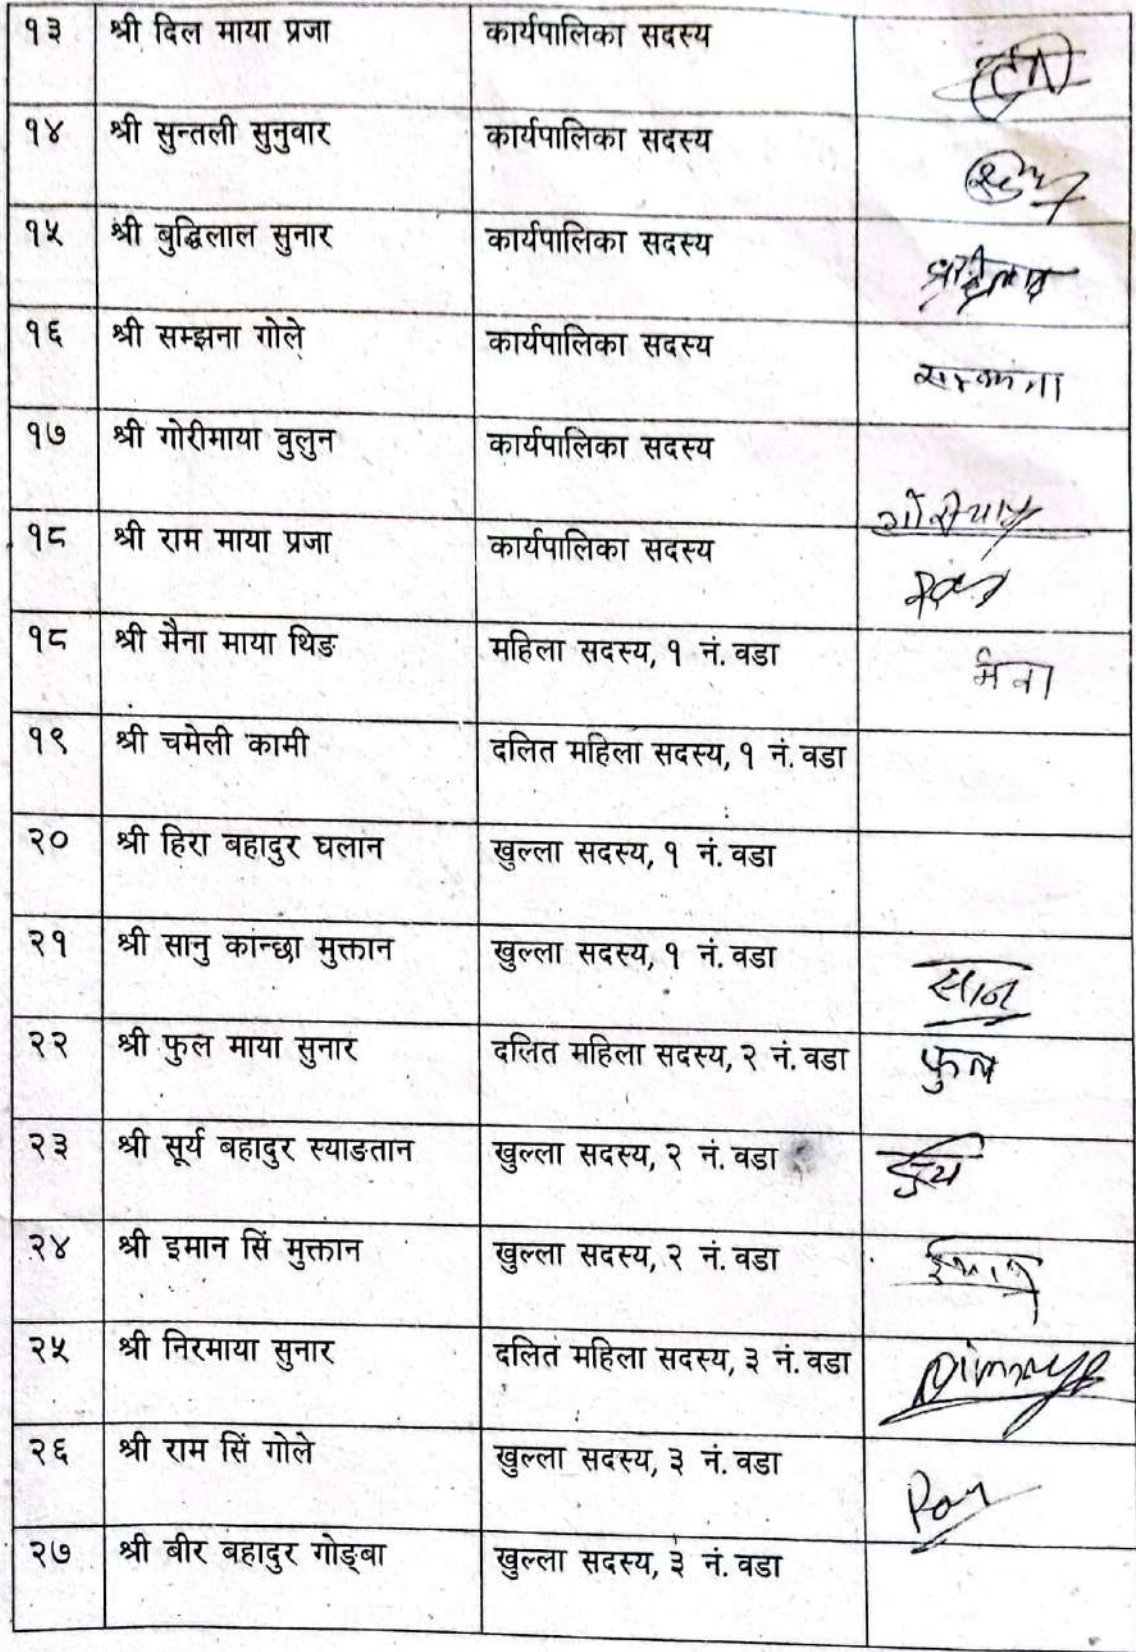 १३ श्री दिल माया प्रजा कार्यपालिका सदस्य
१४ श्री सुन्तली सुनुवार कार्यपालिका सदस्य
१५ श्री बुद्धिलाल सुनार कार्यपालिका सदस्य
१६ श्री सम्झना गोले कार्यपालिका सदस्य
१७ श्री गोरीमाया वुलुन कार्यपालिका सदस्य
१८ श्री राम माया प्रजा कार्यपालिका सदस्य
१८ श्री मैना माया थिङ महिला सदस्य, १ नं. वडा मैना
१९ श्री चमेली कामी दलित महिला सदस्य, १ नं. वडा
२० श्री हिरा बहादुर घलान खुल्ला सदस्य, १ नं. वडा
२१ श्री सानु कान्छा मुक्तान खुल्ला सदस्य, १ नं. वडा सानु
२२ श्री फुल माया सुनार दलित महिला सदस्य, २ नं. वडा फुल
२३ श्री सूर्य बहादुर स्याङतान खुल्ला सदस्य, २ नं. वडा
२४ श्री इमान सिं मुक्तान खुल्ला सदस्य, २ नं. वडा
२५ श्री निरमाया सुनार दलित महिला सदस्य, ३ नं. वडा
२६ श्री राम सिं गोले खुल्ला सदस्य, ३ नं. वडा
२७ श्री बीर बहादुर गोङ्बा खुल्ला सदस्य, ३ नं. वडा